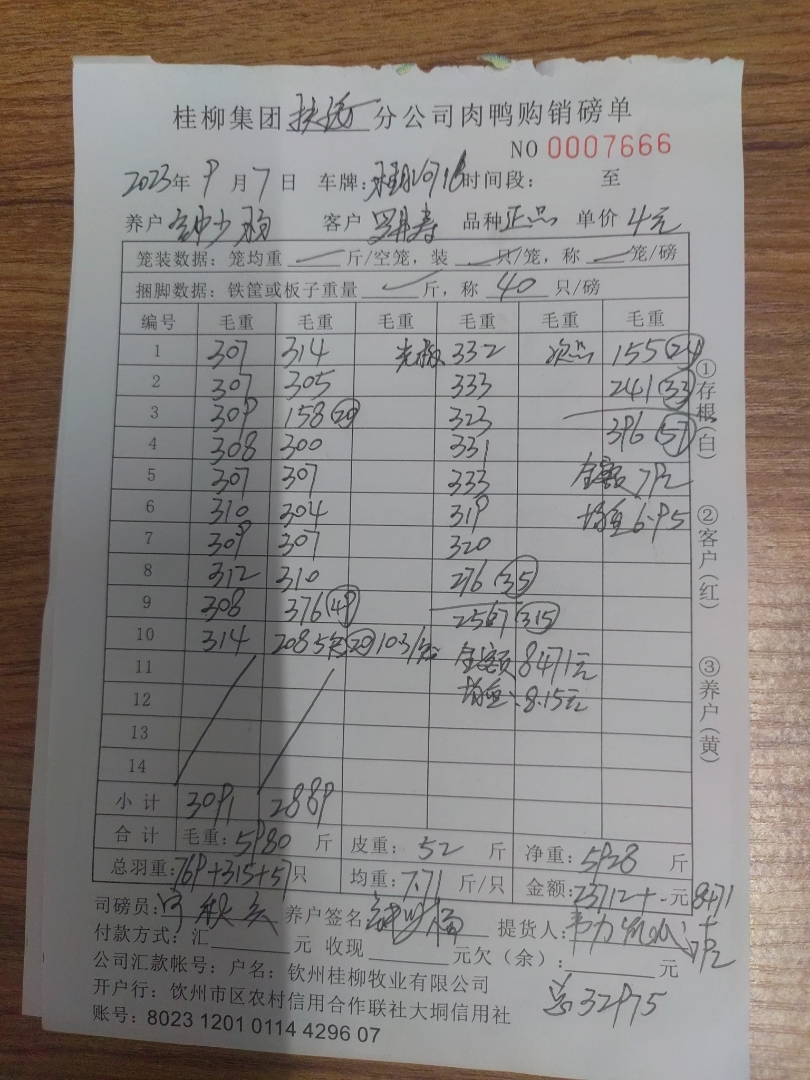 桂柳集团 扶绥 分公司肉鸭购销磅单
NO 0007666
2023年 9月7日 车牌: 时间段: 至
养户 钟少 客户 寿 品种 正品 单价 4元
笼装数据: 笼均重 斤/空笼, 装 只/笼, 称 笼/磅
捆脚数据: 铁筐或板子重量 斤, 称 40 只/磅
编号 毛重 毛重 毛重 毛重 毛重 毛重
1 307 314 光板 332 次品 155 (24)
2 307 305 333 241 (33)
3 309 158 (20) 323 396 (57)
4 308 300 331
5 307 307 333 金额 792
6 310 304 319 均重 6.95
7 309 307 320
8 312 310 276 (35)
9 308 376 (49) 2567 (315)
10 314 208 (20) 金额 8471元
11 均重: 8.15元
12
13
14
小计 3091 2889
合计 毛重: 5980 斤 皮重: 52 斤 净重: 5928 斤
总羽重: 769+315+57 只 均重: 7.71 斤/只 金额: 23712+ 元 8471
司磅员: 养户签名 提货人: + 792
付款方式: 汇 元 收现 元欠(余): 元
公司汇款帐号: 户名: 钦州桂柳牧业有限公司
开户行: 钦州市区农村信用合作联社大垌信用社 总32975
账号: 8023 1201 0114 4296 07
①存根(白)
②客户(红)
③养户(黄)